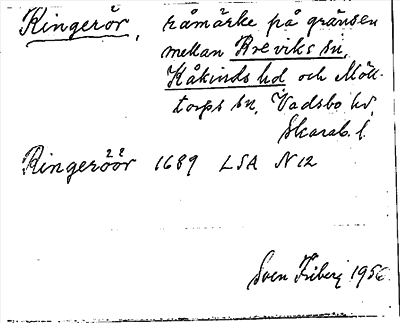 Ringerör, råmärke på gränsen
mellan Breviks sn,
Kåkinds hd och Möll-
torps sn, Vadsbo hd,
Skarab. l.
Ringeröör 1689 LSA N12
Sven Friberg 1956